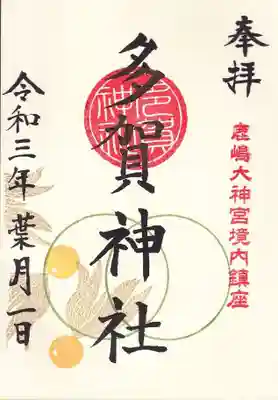 奉拝
鹿嶋大神宮境内鎮座
多賀神社
令和三年葉月一日